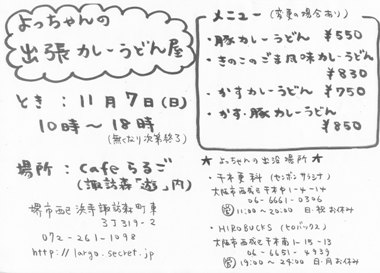 よっちゃんの
出張カレーうどん屋
とき：11月7日(日)
10時〜18時
(無くなり次第終了)
場所：Cafeらるご
(諏訪森「遊」内)
堺市西区浜寺諏訪森町東
3丁319-2
072-261-1098
http://largo.secret.jp
メニュー(変更の場合あり)
・豚カレーうどん ¥550
・きのこのごま風味カレーうどん
¥830
・かすカレーうどん ¥750
・かす・豚カレーうどん
¥850
★よっちゃんの出没場所★
・千本更科(センボンサラシナ)
大阪市西成区千本中1-4-14
06-6661-0396
営11:00〜20:00 日・祝お休み
・HIROBUCKS(ヒロバックス)
大阪市西成区千本南1-15-13
06-6651-4939
営19:00〜24:00 日・月お休み